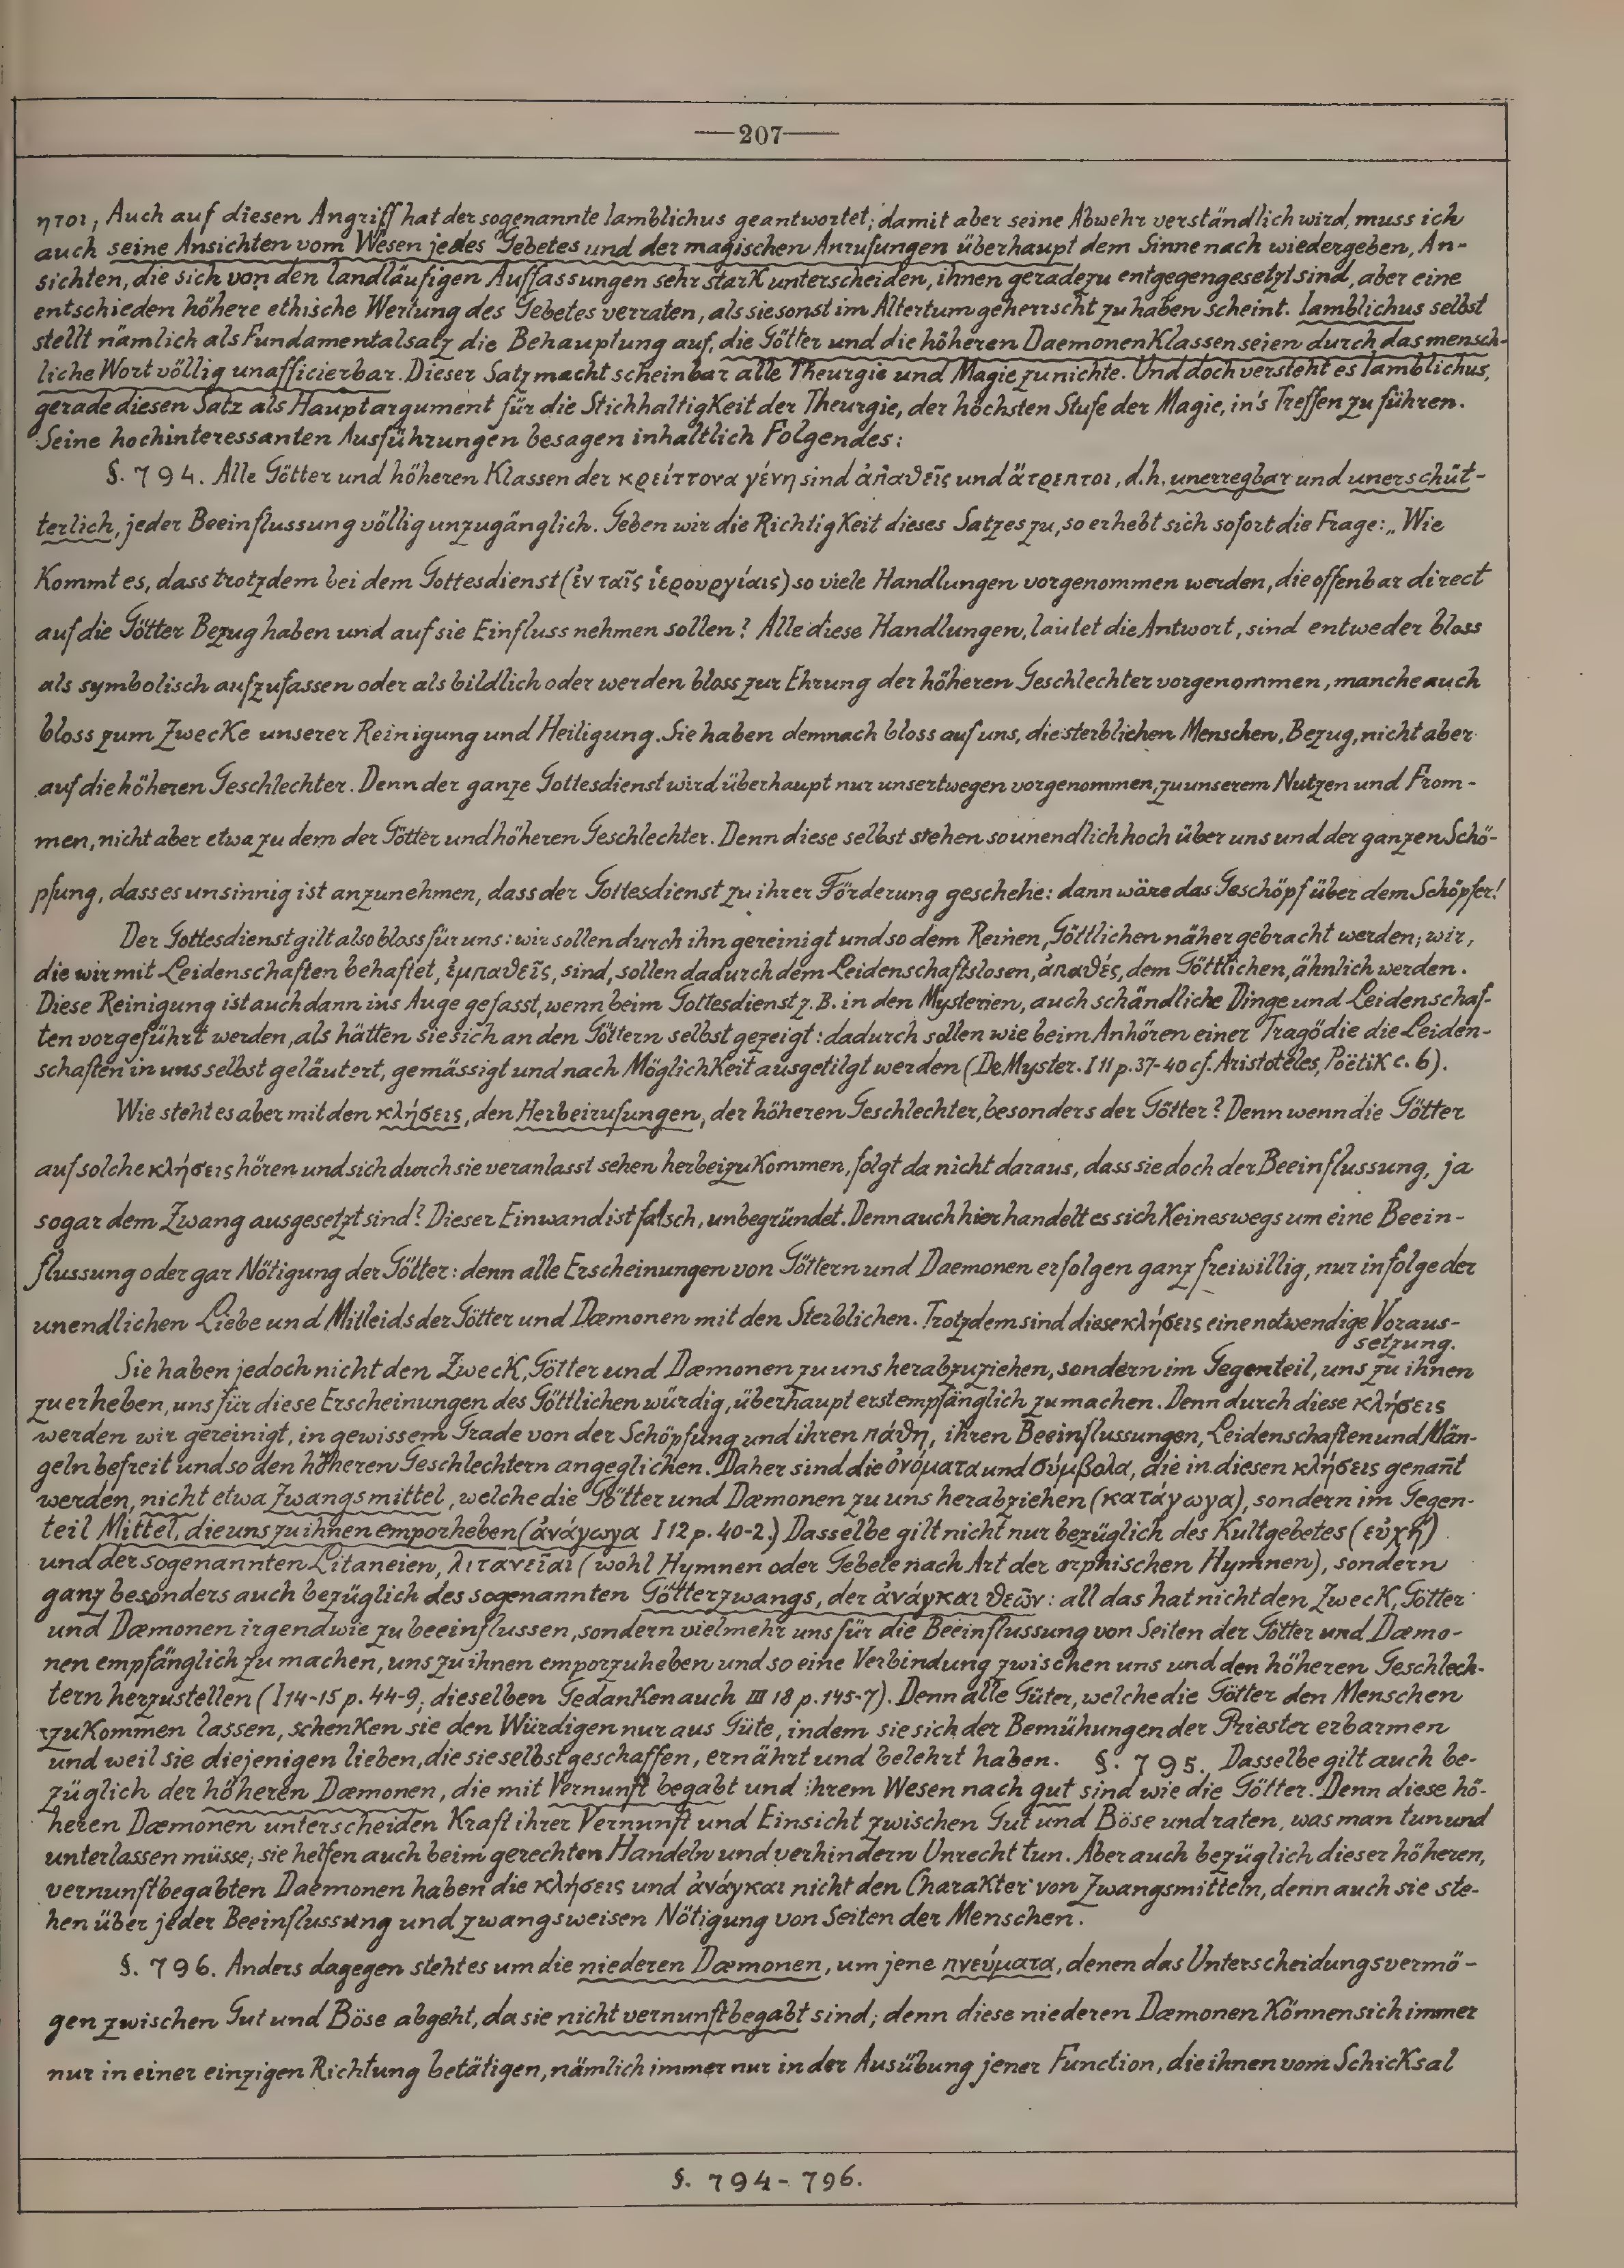 —207—
ητοι; Auch auf diesen Angriff hat der sogenannte Iamblichus geantwortet; damit aber seine Abwehr verständlich wird, muss ich
auch seine Ansichten vom Wesen jedes Gebetes und der magischen Anrufungen überhaupt dem Sinne nach wiedergeben, An-
sichten, die sich von den landläufigen Auffassungen sehr stark unterscheiden, ihnen geradezu entgegengesetzt sind, aber eine
entschieden höhere ethische Wertung des Gebetes verraten, als sie sonst im Altertum geherrscht zu haben scheint. Iamblichus selbst
stellt nämlich als Fundamentalsatz die Behauptung auf, die Götter und die höheren Daemonenklassen seien durch das mensch-
liche Wort völlig unafficierbar. Dieser Satz macht scheinbar alle Theurgie und Magie zunichte. Und doch versteht es Iamblichus,
gerade diesen Satz als Hauptargument für die Stichhaltigkeit der Theurgie, der höchsten Stufe der Magie, in's Treffen zu führen.
Seine hochinteressanten Ausführungen besagen inhaltlich Folgendes:
§. 794. Alle Götter und höheren Klassen der κρείττονα γένη sind ἀπαθεῖς und ἄτρεπτοι, d.h. unerregbar und unerschüt-
terlich, jeder Beeinflussung völlig unzugänglich. Geben wir die Richtigkeit dieses Satzes zu, so erhebt sich sofort die Frage: „Wie
kommt es, dass trotzdem bei dem Gottesdienst (ἐν ταῖς ἱερουργίαις) so viele Handlungen vorgenommen werden, die offenbar direct
auf die Götter Bezug haben und auf sie Einfluss nehmen sollen? Alle diese Handlungen, lautet die Antwort, sind entweder bloss
als symbolisch aufzufassen oder als bildlich oder werden bloss zur Ehrung der höheren Geschlechter vorgenommen, manche auch
bloss zum Zwecke unserer Reinigung und Heiligung. Sie haben demnach bloss auf uns, die sterblichen Menschen, Bezug, nicht aber
auf die höheren Geschlechter. Denn der ganze Gottesdienst wird überhaupt nur unsertwegen vorgenommen, zu unserem Nutzen und From-
men, nicht aber etwa zu dem der Götter und höheren Geschlechter. Denn diese selbst stehen so unendlich hoch über uns und der ganzen Schö-
pfung, dass es unsinnig ist anzunehmen, dass der Gottesdienst zu ihrer Förderung geschehe: dann wäre das Geschöpf über dem Schöpfer!
Der Gottesdienst gilt also bloss für uns: wir sollen durch ihn gereinigt und so dem Reinen, Göttlichen näher gebracht werden; wir,
die wir mit Leidenschaften behaftet, ἐμπαθεῖς, sind, sollen dadurch dem Leidenschaftslosen, ἀπαθές, dem Göttlichen, ähnlich werden.
Diese Reinigung ist auch dann ins Auge gefasst, wenn beim Gottesdienst z. B. in den Mysterien, auch schändliche Dinge und Leidenschaf-
ten vorgeführt werden, als hätten sie sich an den Göttern selbst gezeigt: dadurch sollen wie beim Anhören einer Tragödie die Leiden-
schaften in uns selbst geläutert, gemässigt und nach Möglichkeit ausgetilgt werden (De Myster. I 11 p. 37-40 cf. Aristoteles, Poëtik c. 6).
Wie steht es aber mit den κλήσεις, den Herbeirufungen, der höheren Geschlechter, besonders der Götter? Denn wenn die Götter
auf solche κλήσεις hören und sich durch sie veranlasst sehen herbeizukommen, folgt da nicht daraus, dass sie doch der Beeinflussung, ja
sogar dem Zwang ausgesetzt sind? Dieser Einwand ist falsch, unbegründet. Denn auch hier handelt es sich keineswegs um eine Beein-
flussung oder gar Nötigung der Götter: denn alle Erscheinungen von Göttern und Daemonen erfolgen ganz freiwillig, nur infolge der
unendlichen Liebe und Mitleids der Götter und Dæmonen mit den Sterblichen. Trotzdem sind diese κλήσεις eine notwendige Voraus-
setzung.
Sie haben jedoch nicht den Zweck, Götter und Dæmonen zu uns herabzuziehen, sondern im Gegenteil, uns zu ihnen
zu erheben, uns für diese Erscheinungen des Göttlichen würdig, überhaupt erst empfänglich zu machen. Denn durch diese κλήσεις
werden wir gereinigt, in gewissem Grade von der Schöpfung und ihren πάθη, ihren Beeinflussungen, Leidenschaften und Män-
geln befreit und so den höheren Geschlechtern angeglichen. Daher sind die ὀνόματα und σύμβολα, die in diesen κλήσεις genan̄t
werden, nicht etwa Zwangsmittel, welche die Götter und Dæmonen zu uns herabziehen (κατάγωγα), sondern im Gegen-
teil Mittel, die uns zu ihnen emporheben (ἀνάγωγα I 12 p. 40-2.) Dasselbe gilt nicht nur bezüglich des Kultgebetes (εὐχή)
und der sogenannten Litaneien, λιτανεῖαι (wohl Hymnen oder Gebete nach Art der orphischen Hymnen), sondern
ganz besonders auch bezüglich des sogenannten Götterzwangs, der ἀνάγκαι θεῶν: all das hat nicht den Zweck, Götter
und Dæmonen irgendwie zu beeinflussen, sondern vielmehr uns für die Beeinflussung von Seiten der Götter und Dæmo-
nen empfänglich zu machen, uns zu ihnen emporzuheben und so eine Verbindung zwischen uns und den höheren Geschlech-
tern herzustellen (I 14-15 p. 44-9; dieselben Gedanken auch III 18 p. 145-7). Denn alle Güter, welche die Götter den Menschen
zukommen lassen, schenken sie den Würdigen nur aus Güte, indem sie sich der Bemühungen der Priester erbarmen
und weil sie diejenigen lieben, die sie selbst geschaffen, ernährt und belehrt haben. §. 795. Dasselbe gilt auch be-
züglich der höheren Dæmonen, die mit Vernunft begabt und ihrem Wesen nach gut sind wie die Götter. Denn diese hö-
heren Dæmonen unterscheiden Kraft ihrer Vernunft und Einsicht zwischen Gut und Böse und raten, was man tun und
unterlassen müsse; sie helfen auch beim gerechten Handeln und verhindern Unrecht tun. Aber auch bezüglich dieser höheren,
vernunftbegabten Daemonen haben die κλήσεις und ἀνάγκαι nicht den Charakter von Zwangsmitteln, denn auch sie ste-
hen über jeder Beeinflussung und zwangsweisen Nötigung von Seiten der Menschen.
§. 796. Anders dagegen steht es um die niederen Dæmonen, um jene πνεύματα, denen das Unterscheidungsvermö-
gen zwischen Gut und Böse abgeht, da sie nicht vernunftbegabt sind; denn diese niederen Dæmonen können sich immer
nur in einer einzigen Richtung betätigen, nämlich immer nur in der Ausübung jener Function, die ihnen vom Schicksal
§. 794-796.